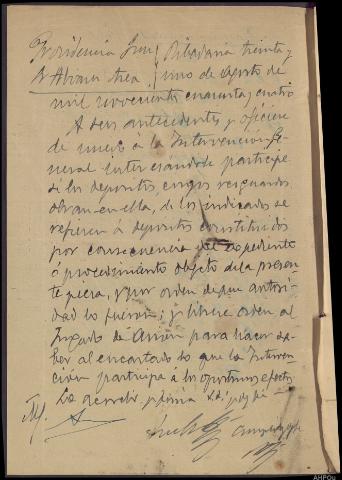 Providencia Juez
Ribadavia treinta y
uno de Agosto de
mil novecientos cuarenta y cuatro
A sus antecedentes y oficiese
de nuevo a la Intervención Ge
neral interesándole participe
si los depositos, cuyos resguardos
obran en ella, de los indicados se
refieren á depositos constituidos
por consecuencia del expediente
ó procedimiento objeto de la presen
te pieza, y por orden de que autori
dad lo fueron; y librese orden al
Juzgado de para hacer sa
ber al encartado lo que la Interven
ción participa á los oportunos efectos
Lo acordó y firma
AHPOu